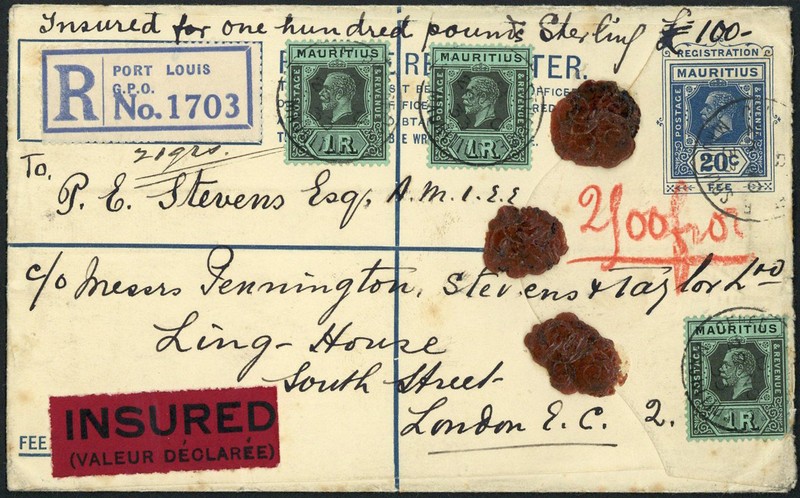 Insured for one hundred pounds Sterling £100-
R
PORT LOUIS
G.P.O.
No. 1703
MAURITIUS
POSTAGE
& REVENUE
1R
MAURITIUS
POSTAGE
& REVENUE
1R
REGISTRATION
MAURITIUS
POSTAGE
& REVENUE
20c
FEE
21grs.
To,
P. E. Stevens Esq, A.M.I.E.E
c/o Messrs Pennington, Stevens & Taylor Ltd
Ling-House
South Street-
London E.C. 2.
MAURITIUS
POSTAGE
& REVENUE
1R
INSURED
(VALEUR DÉCLARÉE)
FEE